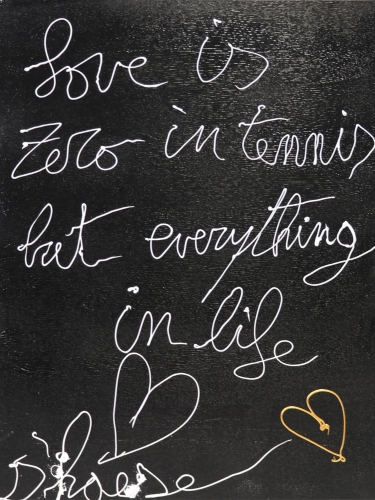 Love is
Zero in tennis
but everything
in life